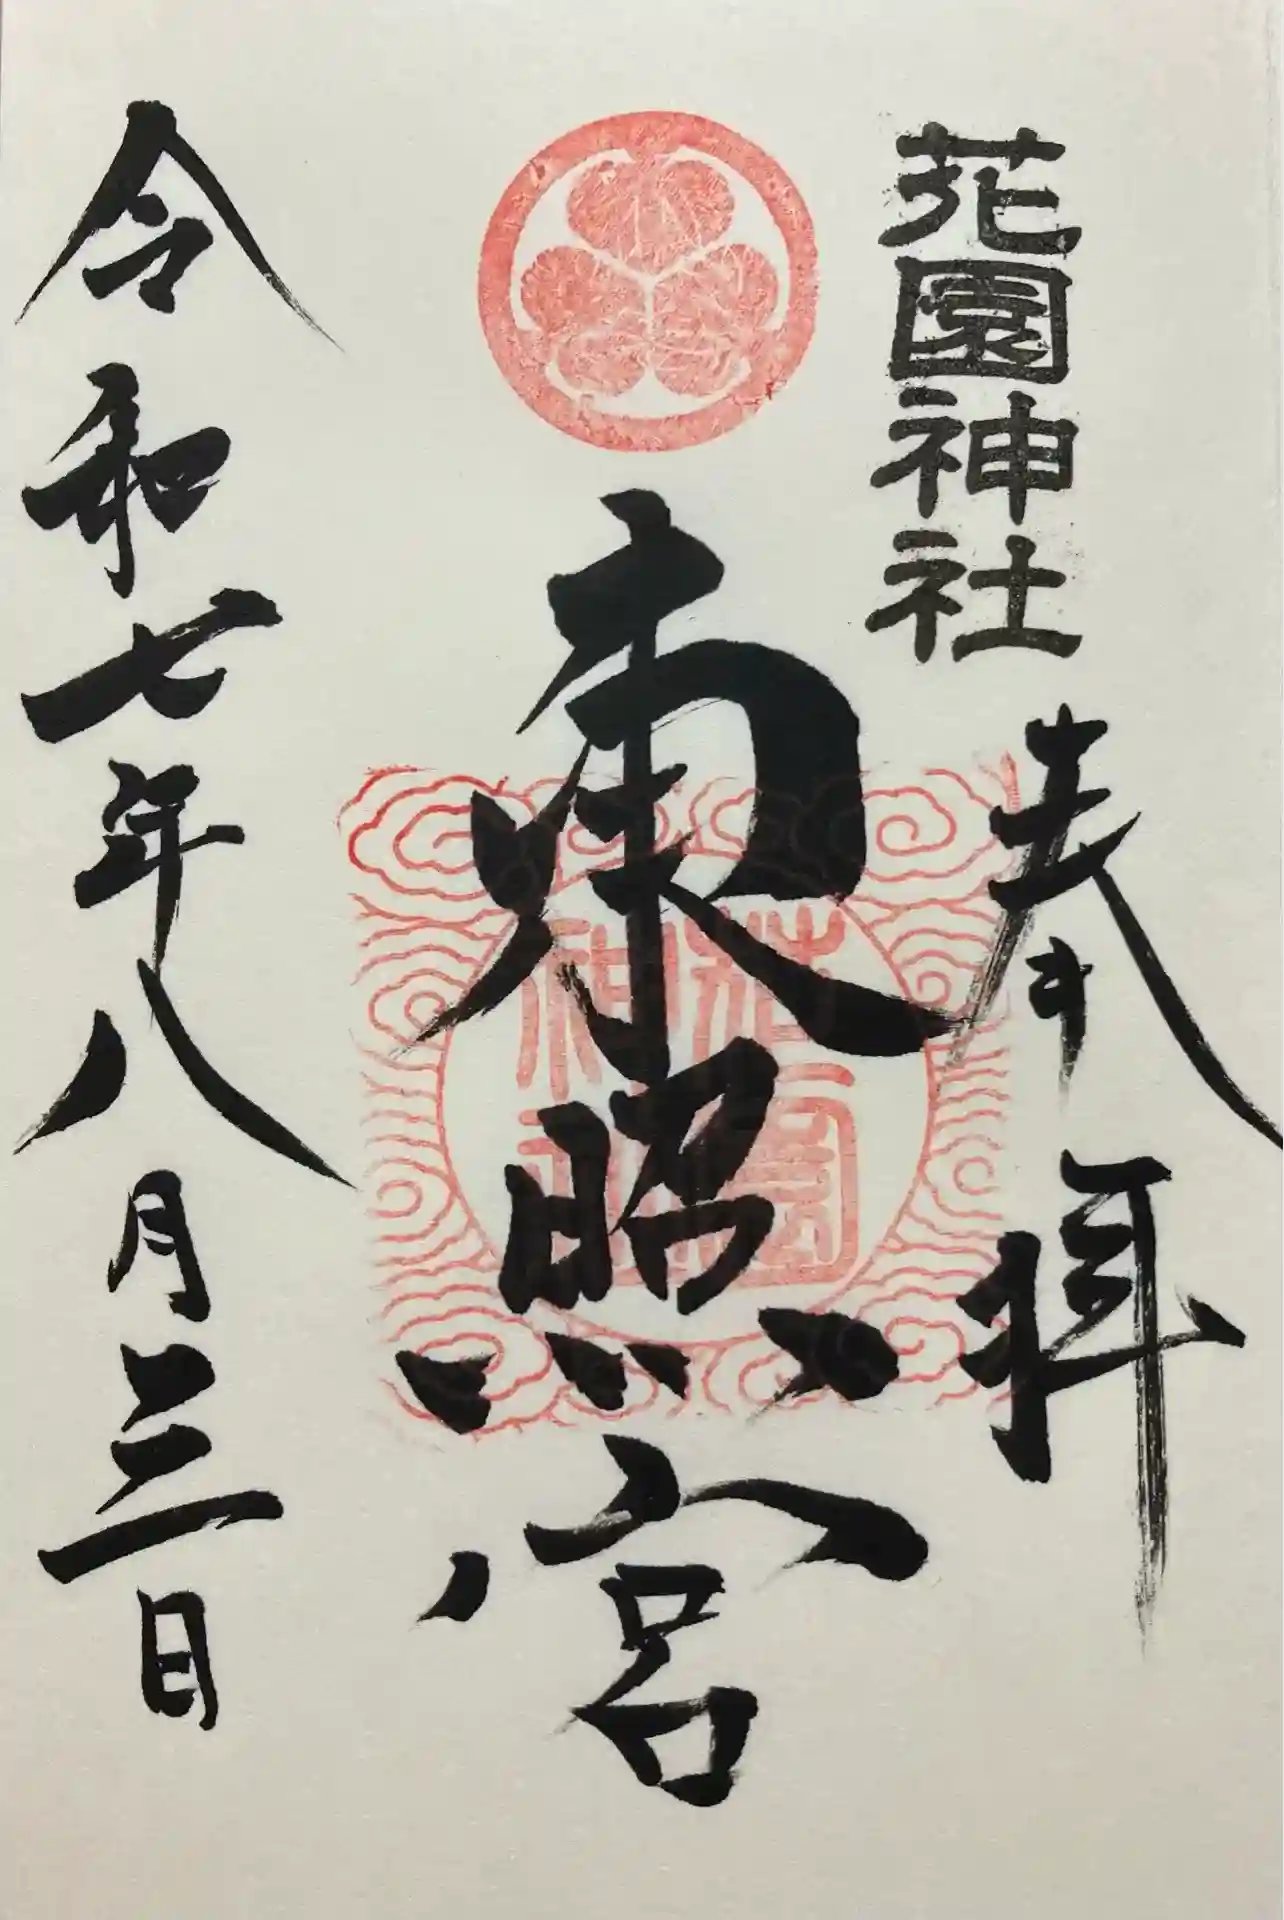 花園神社
奉拝
東照宮
令和七年八月三日
花園
神社